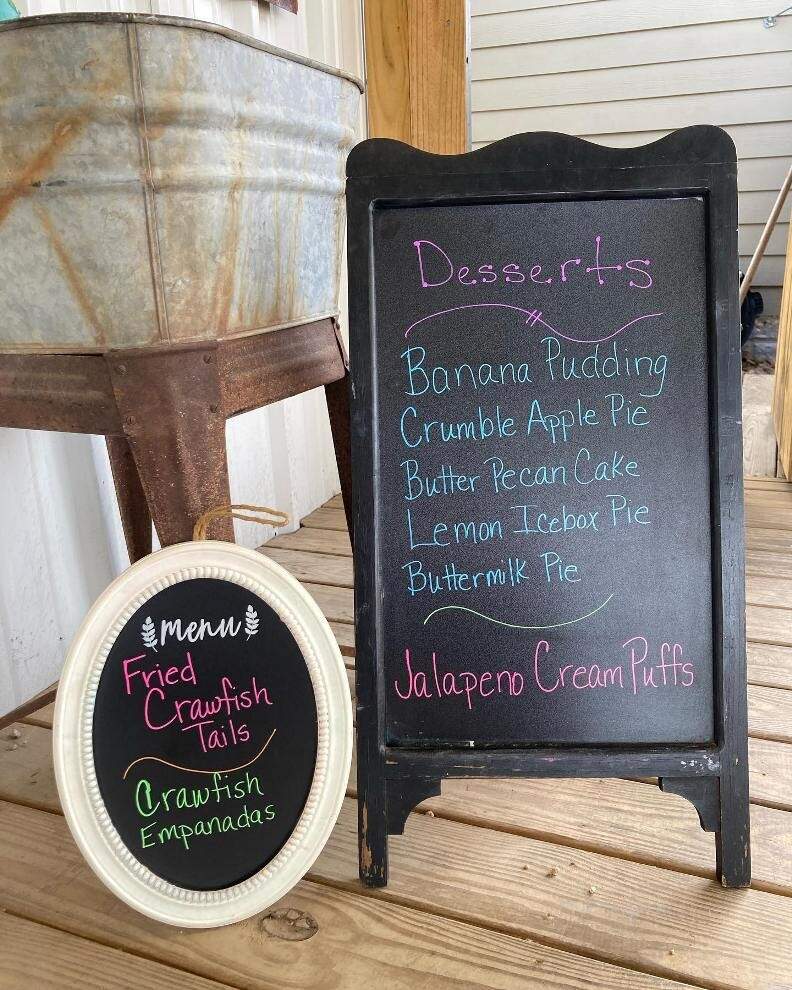 Desserts
Banana Pudding
Crumble Apple Pie
Butter Pecan Cake
Lemon Icebox Pie
Buttermilk Pie
Jalapeno Cream Puffs
menu
Fried
Crawfish
Tails
Crawfish
Empanadas